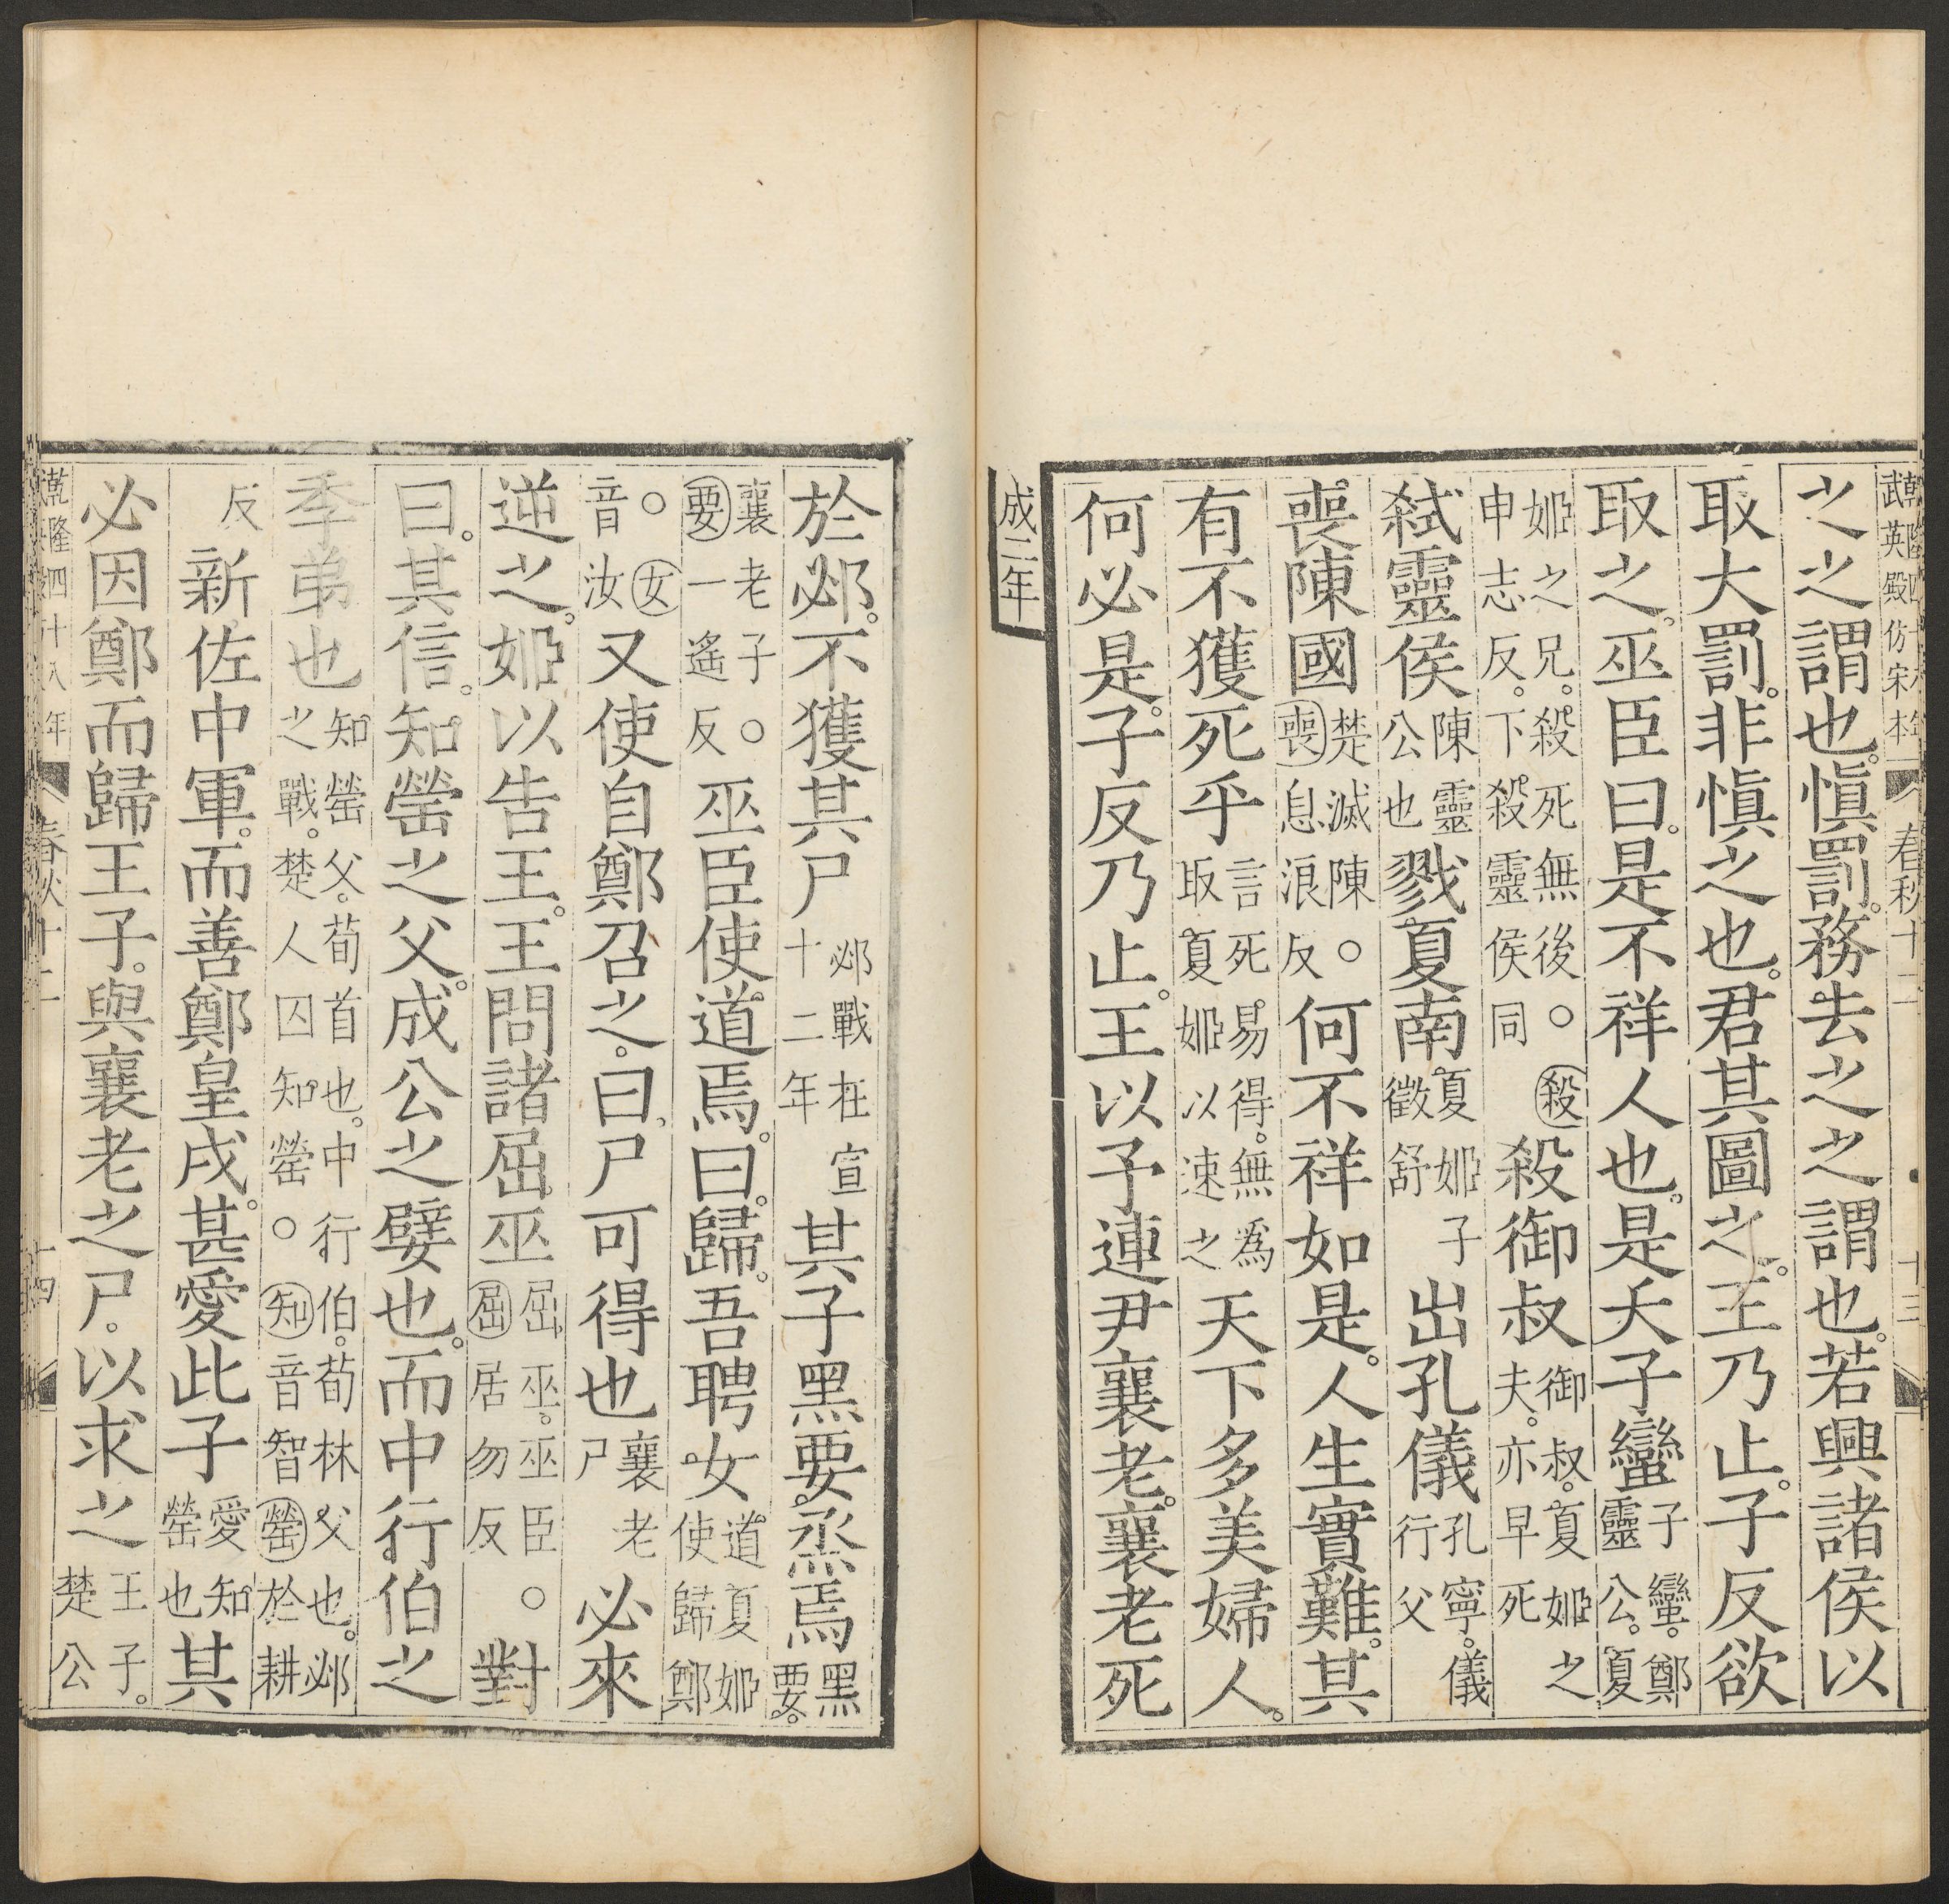 乾隆四十八年
武英殿仿宋本
春秋十二
十三
之之謂也。愼罰。務去之之謂也。若興諸侯以
取大罰。非愼之也。君其圖之。王乃止。子反欲
取之。巫臣曰。是不祥人也。是夭子蠻子蠻。鄭靈公。夏
姬之兄。殺死無後。○殺申志反。下殺靈侯同殺御叔御叔。夏姬之夫。亦早死
弑靈侯陳靈公也戮夏南夏姬子徵舒出孔儀孔寧。儀行父
喪陳國楚滅陳。○喪息浪反何不祥如是。人生實難。其
有不獲死乎言死易得。無爲取夏姬以速之天下多美婦人。
何必是。子反乃止。王以予連尹襄老。襄老死
成二年
於邲。不獲其尸邲戰在宣十二年其子黑要。烝焉黑要。
襄老子○要一遙反巫臣使道焉。曰。歸。吾聘女道夏姬使歸鄭
○女音汝又使自鄭召之。曰、尸可得也襄老尸必來
逆之。姬以告王。王問諸屈巫屈巫。巫臣○屈居勿反對
曰。其信。知罃之父。成公之嬖也。而中行伯之
季弟也知罃父。荀首也。中行伯。荀林父也。邲之戰。楚人囚知罃○知音智罃於耕
反新佐中軍。而善鄭皇戌。甚愛此子愛知罃也其
必因鄭而歸王子。與襄老之尸。以求之王子。楚公
乾隆四十八年
春秋十二
十四